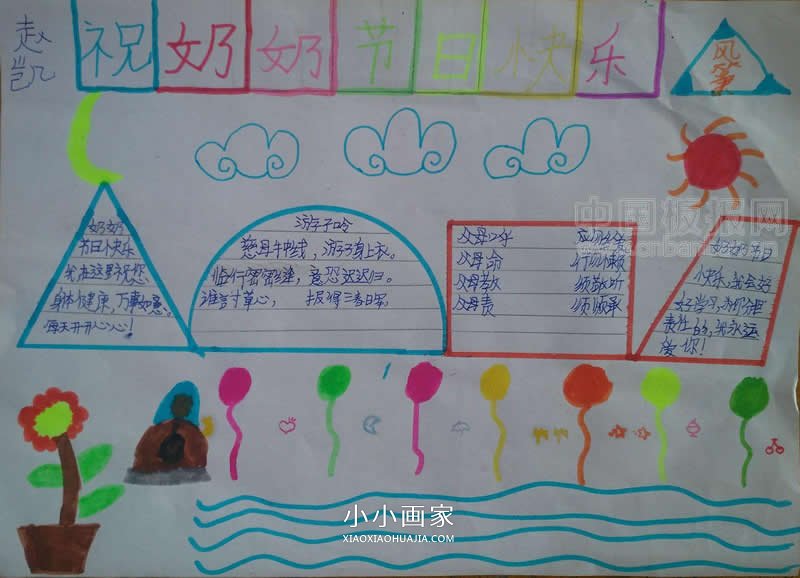 赵凯
祝奶奶节日快乐
风筝
中国板报网
奶奶
节日快乐
我在这里祝您
身体健康,万事如意。
每天开开心心!
游子吟
慈母手中线,游子身上衣。
临行密密缝,意恐迟迟归。
谁言寸草心, 报得三春日军
父母呼 应勿缓
父母命 行勿懒
父母教 须敬听
父母责 须顺承
奶奶节日
快乐,我会好
好学习,为你分担
责任的,我永远
爱你!
小小画家
XIAOXIAOHUAJIA.COM